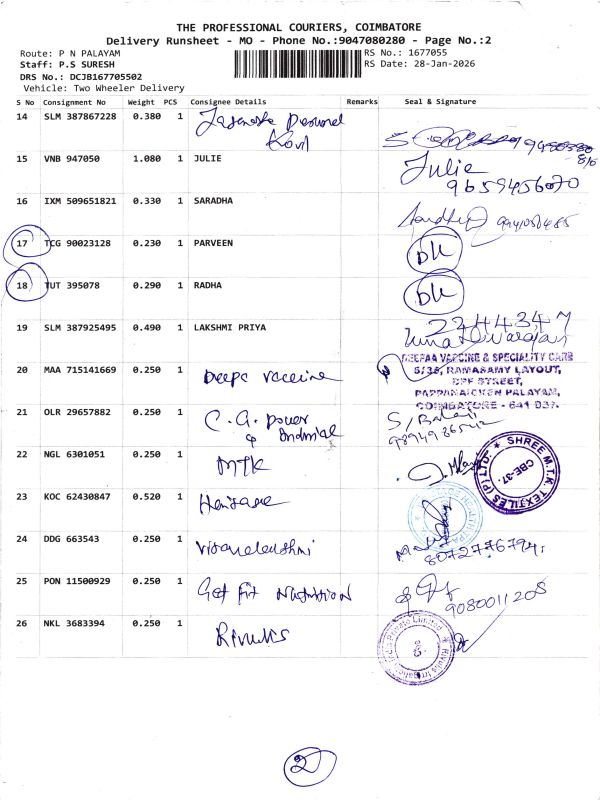 THE PROFESSIONAL COURIERS, COIMBATORE
Delivery Runsheet - MO - Phone No.:9047080280 - Page No.:2
Route: P N PALAYAM RS No.: 1677055
Staff: P.S SURESH RS Date: 28-Jan-2026
DRS No.: DCJB167705502
Vehicle: Two Wheeler Delivery
S No Consignment No Weight PCS Consignee Details Remarks Seal & Signature
14 SLM 387867228 0.380 1
15 VNB 947050 1.080 1 JULIE Julie
9659456070
16 IXM 509651821 0.330 1 SARADHA
17 TCG 90023128 0.230 1 PARVEEN DK
18 TUT 395078 0.290 1 RADHA DK
19 SLM 387925495 0.490 1 LAKSHMI PRIYA 2244347
DEEPAA VACCINE & SPECIALITY CARE
20 MAA 715141669 0.250 1 Deepa vaccine 5/38, RAMASAMY LAYOUT,
DPF STREET,
PAPPANAICKEN PALAYAM,
COIMBATORE - 641 037.
21 OLR 29657882 0.250 1 C.G. power
& Indusrial
22 NGL 6301051 0.250 1 MTK SHREE M.T.K. TEXTILES (P) LTD.
CBE-37.
23 KOC 62430847 0.520 1
24 DDG 663543 0.250 1 8072776794
25 PON 11500929 0.250 1 Get Fit Nutrition
9080011208
26 NKL 3683394 0.250 1 Rivulis
Rivulis Irrigation India Private Limited
2